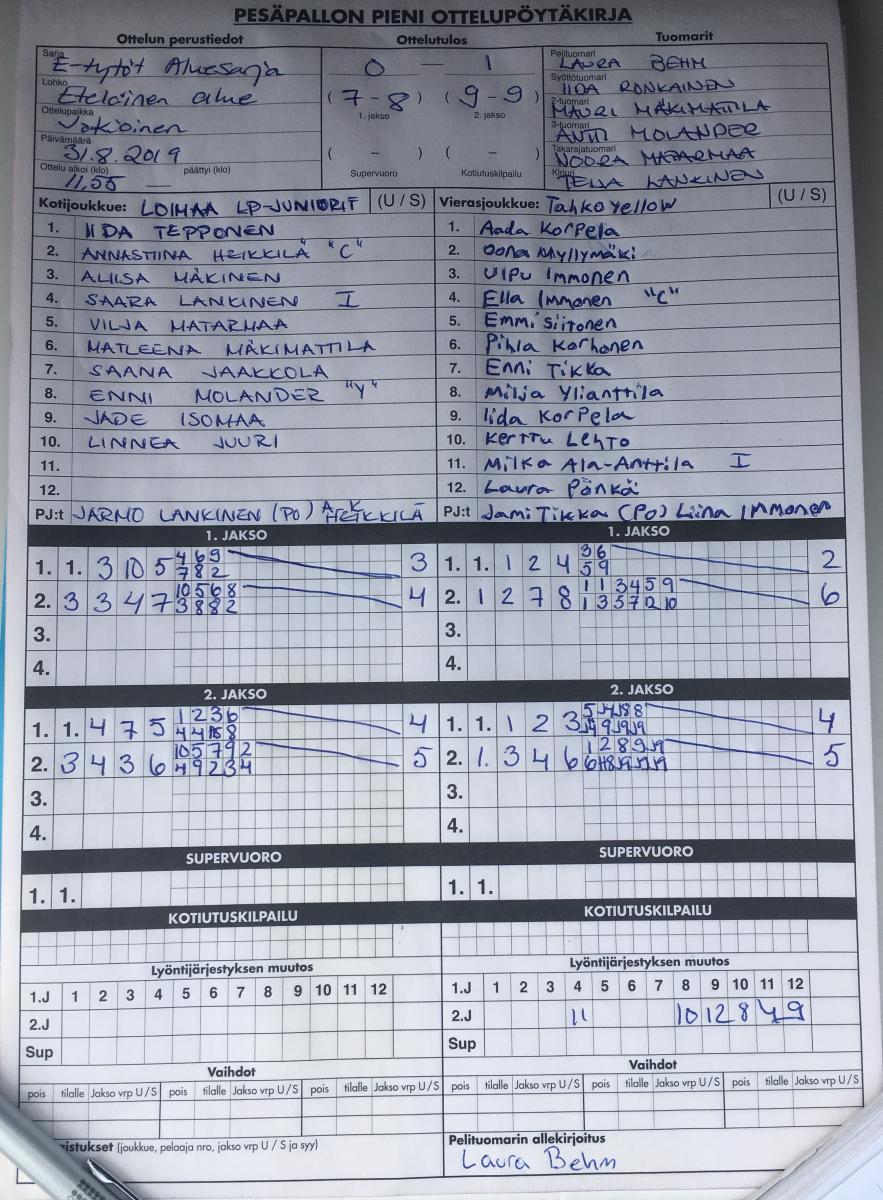 PESÄPALLON PIENI OTTELUPÖYTÄKIRJA
Ottelun perustiedot
Sarja
E-tytöt Aluesarja
Lohko
Eteläinen alue
Ottelupaikka
Jokioinen
Päivämäärä
31.8.2019
Ottelu alkoi (klo) päättyi (klo)
11,55 —
Ottelutulos
0 — 1
(7-8) (9-9)
1. jakso 2. jakso
( - ) ( - )
Supervuoro Kotiutuskilpailu
Tuomarit
Pelituomari
LAURA BEHM
Syöttötuomari
IIDA RONKAINEN
2-tuomari
MAURI MÄKIMATTILA
3-tuomari
ANTTI MOLANDER
Takarajatuomari
NOORA MATARMAA
Kirjuri
TEIJA LANKINEN
Kotijoukkue: LOIMAA LP-JUNIORIT (U / S)
1. IIDA TEPPONEN
2. ANNASTIINA HEIKKILÄ "C"
3. ALIISA MÄKINEN
4. SAARA LANKINEN I
5. VILJA MATARMAA
6. MATLEENA MÄKIMATTILA
7. SAANA JAAKKOLA
8. ENNI MOLANDER "Y"
9. JADE ISOMAA
10. LINNEA JUURI
11.
12.
PJ:t JARMO LANKINEN (PO) HEIKKILÄ
Vierasjoukkue: Tahko yellow (U / S)
1. Aada Korpela
2. Oona Myllymäki
3. Vilpu Immonen
4. Ella Immonen "C"
5. Emmi Siitonen
6. Pihla Korhonen
7. Enni Tikka
8. Milja Ylianttila
9. Iida Korpela
10. Kerttu Lehto
11. Milka Ala-Anttila I
12. Laura Pönkä
PJ:t Jami Tikka (PO) Liina Immonen
1. JAKSO
1. 1. 3 10 5 4 6 9 3
7 8 2
2. 3 3 4 7 10 5 6 8 4
3 8 8 2
3.
4.
1. JAKSO
1. 1. 1 2 4 3 6 2
5 9
2. 1 2 7 8 1 1 3 4 5 9 6
1 3 5 7 12 10
3.
4.
2. JAKSO
1. 1. 4 7 5 1 2 3 6 4
4 4 8
2. 3 4 3 6 10 5 7 9 2 5
4 9 2 3 4
3.
4.
2. JAKSO
1. 1. 1 2 3 4
2. 1. 3 4 6 5
3.
4.
SUPERVUORO
1. 1.
SUPERVUORO
1. 1.
KOTIUTUSKILPAILU
KOTIUTUSKILPAILU
Lyöntijärjestyksen muutos
1.J 1 2 3 4 5 6 7 8 9 10 11 12
2.J
Sup
Lyöntijärjestyksen muutos
1.J 1 2 3 4 5 6 7 8 9 10 11 12
2.J 11 10 12 8 4 9
Sup
Vaihdot
pois tilalle Jakso vrp U / S pois tilalle Jakso vrp U / S pois tilalle Jakso vrp U / S
Vaihdot
pois tilalle Jakso vrp U / S pois tilalle Jakso vrp U / S pois tilalle Jakso vrp U / S
istukset (joukkue, pelaaja nro, jakso vrp U / S ja syy)
Pelituomarin allekirjoitus
Laura Behm